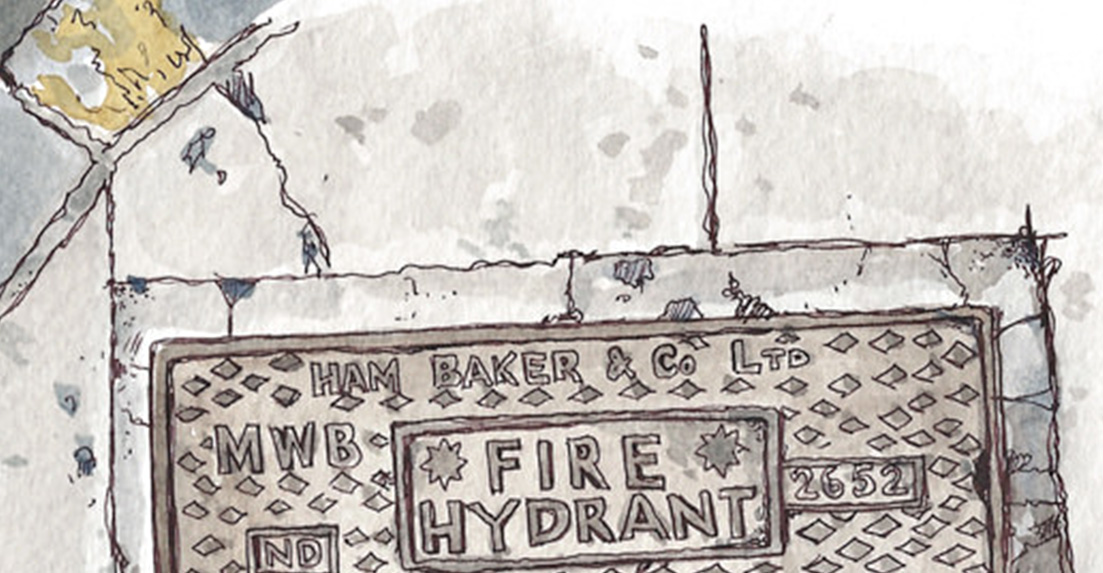 HAM BAKER & Co LTD
MWB
FIRE
HYDRANT
2652
ND